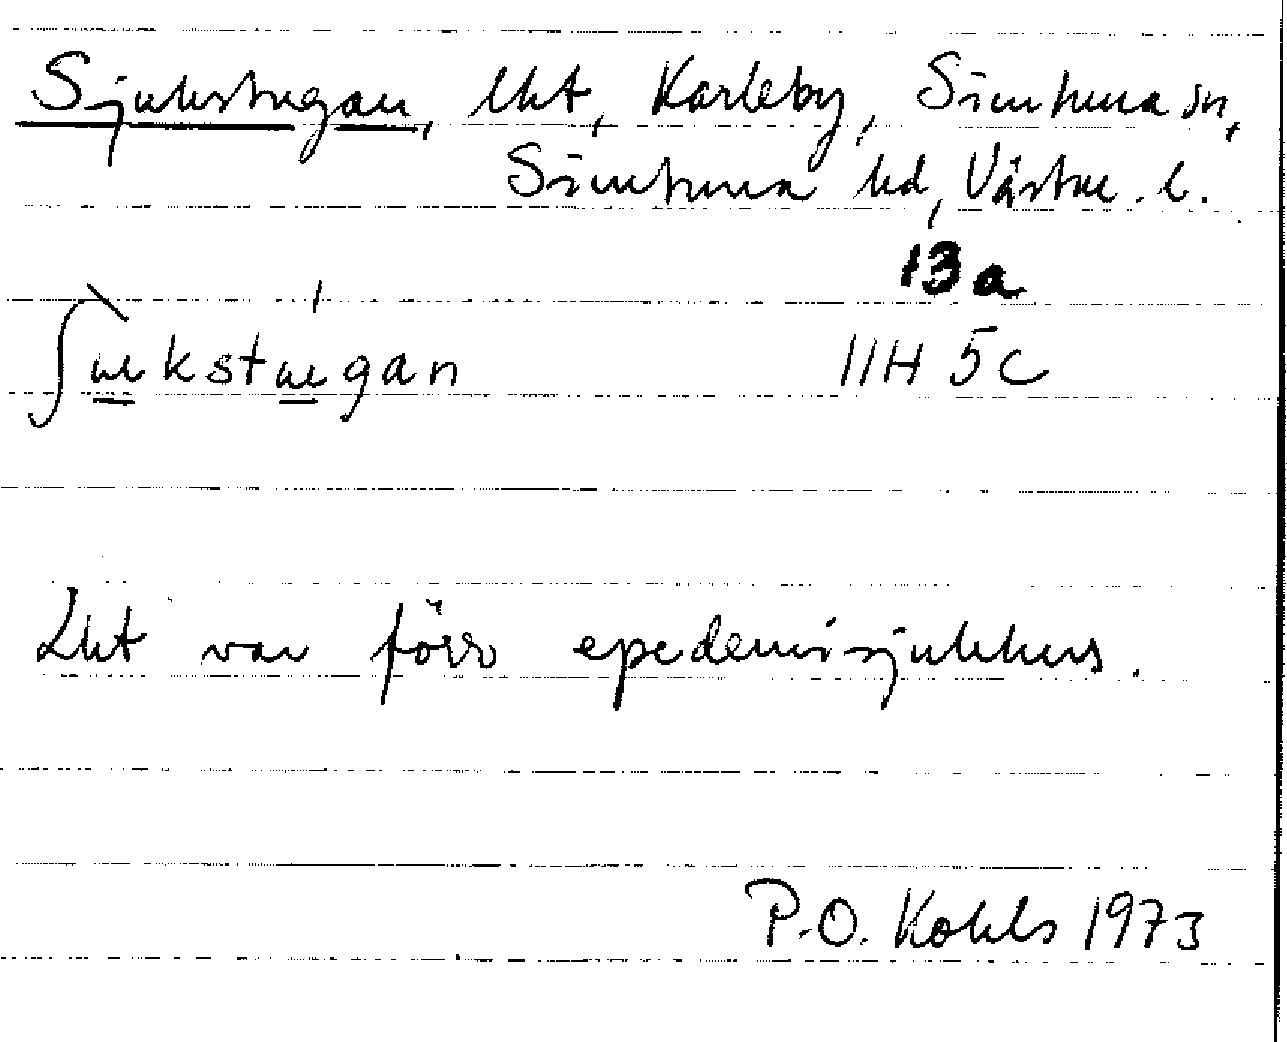 Sjukstugan, lht, Karleby, Simtuna sn,
Simtuna hd, Västm. l.
13a
11H 5c
Lht var förr epedemisjukhus.
P.O. Kohls 1973